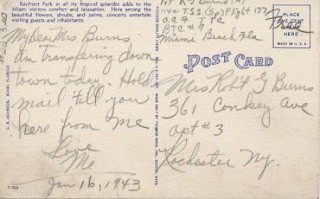 Bayfront Park in all its tropical splendor adds to the
Miami visitors comfort and relaxation. Here among the
beautiful flowers, shrubs, and palms, concerts entertain
visiting guests and inhabitants.
My dear Mrs Burns:
Am transfering down
town today. Hold
mail 'till you
hear from me
Love
Me
Jan 16, 1943
Burns
BTC #
Miami Beach, Fla
Free
PLACE
STAMP
HERE
MADE IN U.S.A.
POST CARD
Mrs Robt G Burns
361 Conkey Ave
Apt #3
Rochester Ny.